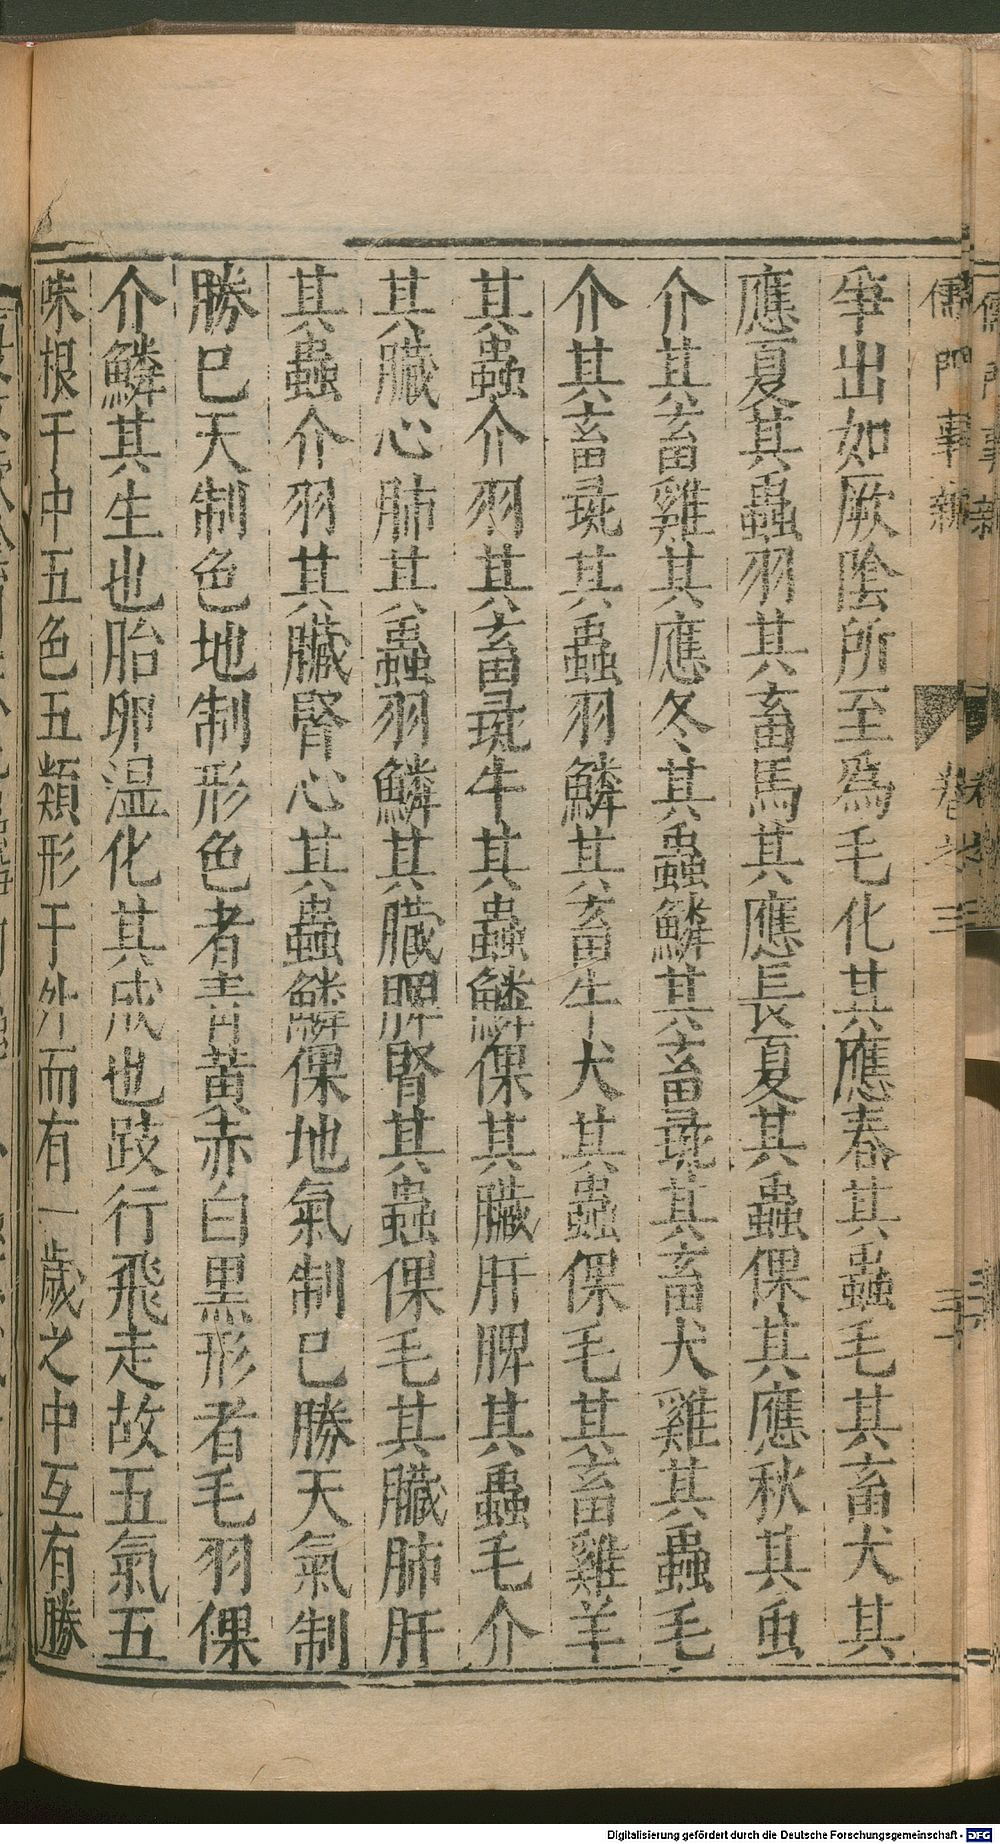 儒門事親 卷之三
出如厥陰所至為毛化其應春其蟲毛其畜犬其
應夏其蟲羽其畜馬其應長夏其蟲倮其應秋其虫
介其畜雞其應冬其蟲鱗其畜彘其畜犬雞其蟲毛
介其畜彘其蟲羽鱗其畜牛犬其蟲倮毛其畜雞羊
其蟲介羽其畜彘牛其蟲鱗倮其臟肝脾其蟲毛介
其臟心肺其蟲羽鱗其臟脾腎其蟲倮毛其臟肺肝
其蟲介羽其臟腎心其蟲鱗倮地氣制巳勝天氣制
勝巳天制色地制形色者青黃赤白黑形者毛羽倮
介鱗其生也胎卵湿化其成也跂行飛走故五氣五
味根于中五色五類形于外而有一歲之中互有勝
Digitalisierung gefördert durch die Deutsche Forschungsgemeinschaft - DFG